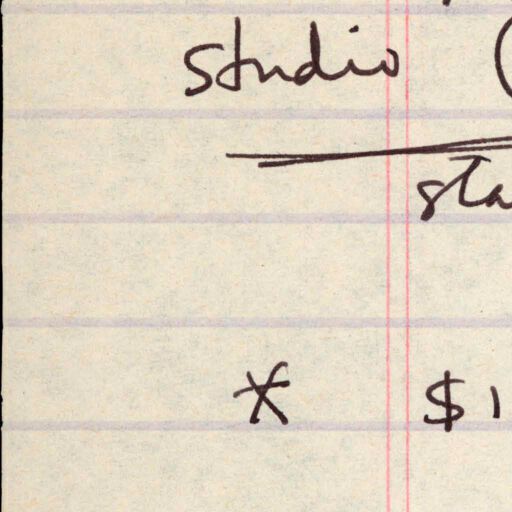 studio (
sta
* $1